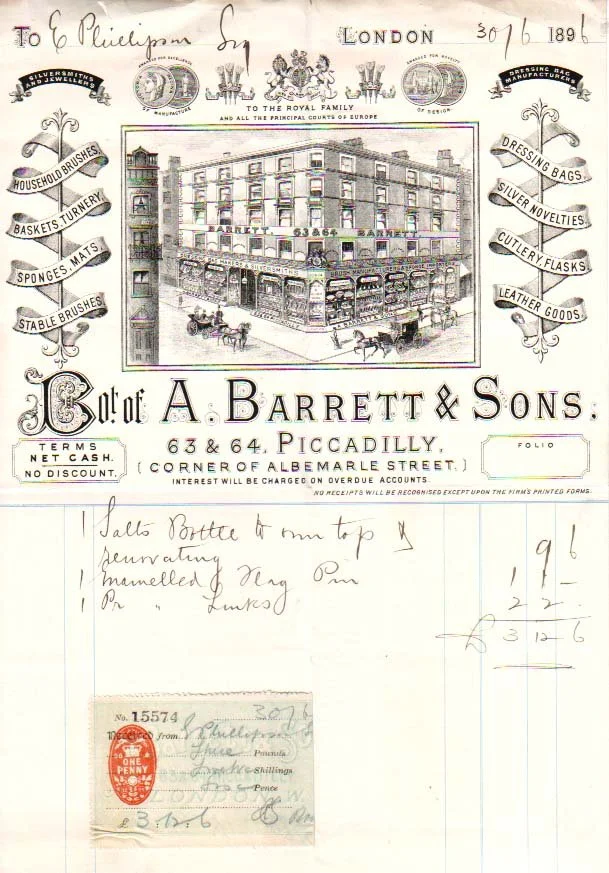 To E Phillipson Esq LONDON 30/6 1896
SILVERSMITHS AND JEWELLERS
AWARDED FOR EXCELLENCE OF MANUFACTURE
AWARDED FOR NOVELTY OF DESIGN
DRESSING BAG MANUFACTURERS
TO THE ROYAL FAMILY
AND ALL THE PRINCIPAL COURTS OF EUROPE
HOUSEHOLD BRUSHES,
BASKETS, TURNERY
SPONGES, MATS,
STABLE BRUSHES
BARRETT. 63 & 64 BARRETT.
DRESSING BAGS,
SILVER NOVELTIES,
CUTLERY, FLASKS,
LEATHER GOODS.
Bot. of A. BARRETT & SONS.
63 & 64, PICCADILLY,
(CORNER OF ALBEMARLE STREET.)
TERMS
NET CASH.
NO DISCOUNT.
FOLIO
INTEREST WILL BE CHARGED ON OVERDUE ACCOUNTS.
NO RECEIPTS WILL BE RECOGNISED EXCEPT UPON THE FIRM'S PRINTED FORMS.
1 Salts Bottle to own top &
renovating 9 6
1 Enamelled Flag Pin 1 1 –
1 Pr " Links 2 2 .
£ 3 12 6
No. 15574 30/6
Received from E Phillipson
Three Pounds
Twelve Shillings
Six Pence
ONE PENNY
LONDON, W.
£ 3 : 12 : 6